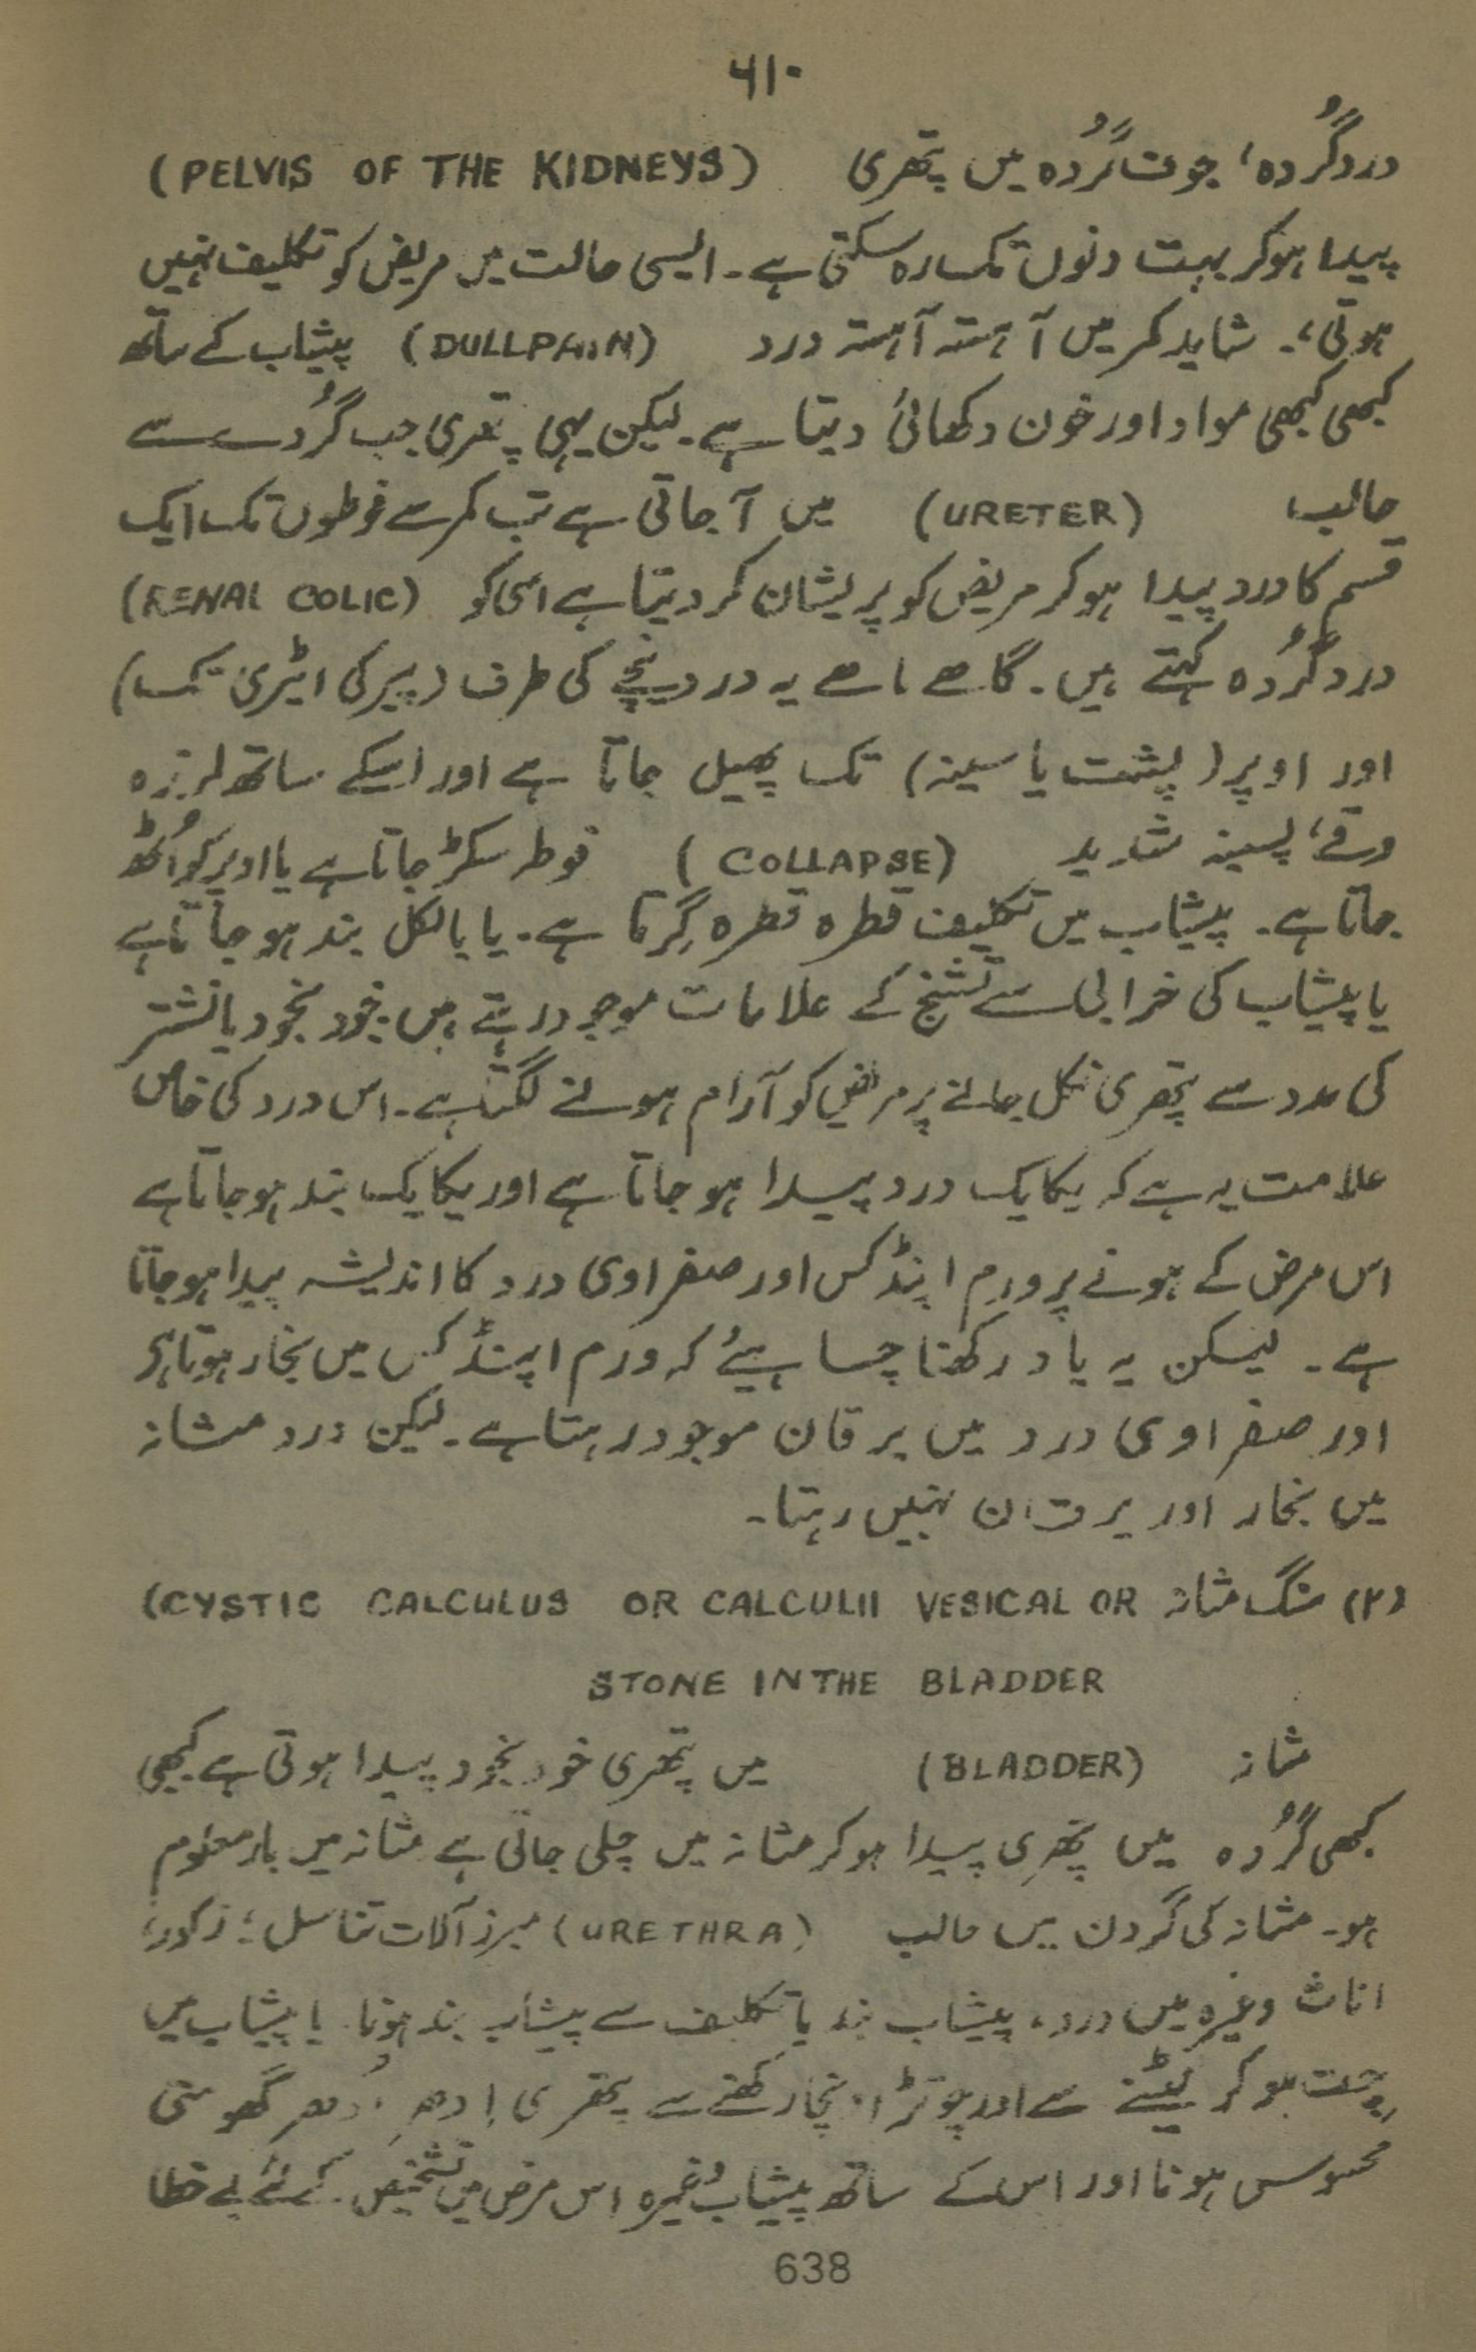 ۶۱۰
دردگُردہ، جوف گُردہ میں پتھری (PELVIS OF THE KIDNEYS)
پیدا ہوکر بہت دنوں تک رہ سکتی ہے۔ ایسی حالت میں مریض کو تکلیف نہیں
ہوتی،۔ شاید کمر میں آہستہ آہستہ درد (DULLPAIN) پیشاب کے ساتھ
کبھی کبھی مواد اور خون دکھائی دیتا ہے۔ لیکن یہی پتھری جب گُردے سے
حالب، (URETER) میں آجاتی ہے تب کمر سے فوطوں تک ایک
قسم کا درد پیدا ہوکر مریض کو پریشان کردیتا ہے اسی کو (RENAL COLIC)
درد گُردہ کہتے ہیں۔ گاہے یہ درد نیچے کی طرف (پیر کی ایڑی تک)
اور اوپر (پشت یا سینہ) تک پھیل جاتا ہے اور اسکے ساتھ لرزہ
وقے، پسینہ شدید (COLLAPSE) فوطہ سکڑ جاتا ہے یا اوپر کو اُٹھ
جاتا ہے۔ پیشاب میں تکلیف قطرہ قطرہ گِرتا ہے۔ یا بالکل بند ہوجاتا ہے
یا پیشاب کی خرابی سے تشنج کے علامات موجود رہتے ہیں۔ خود بخود یا نشتر
کی مدد سے پتھری نکل جانے پر مریض کو آرام ہونے لگتا ہے۔ اس درد کی خاص
علامت یہ ہے کہ یکایک درد پیدا ہو جاتا ہے اور یکایک بند ہوجاتا ہے
اس مرض کے ہونے پر ورم اپنڈکس اور صفراوی درد کا اندیشہ پیدا ہوجاتا
ہے۔ لیکن یہ یاد رکھنا چاہیئے کہ ورم اپنڈکس میں بخار ہوتا ہے
اور صفراوی درد میں یرقان موجود رہتا ہے۔ لیکن درد مثانہ
میں بخار اور یرقان نہیں رہتا۔
(۲) سنگ مثانہ (CYSTIC CALCULUS OR CALCULII VESICAL OR
STONE IN THE BLADDER
مثانہ (BLADDER) میں پتھری خود بخود پیدا ہوتی ہے کبھی
کبھی گُردہ میں پتھری پیدا ہوکر مثانہ میں چلی جاتی ہے مثانہ میں بار معلوم
ہو۔ مثانہ کی گردن میں حالب (URETHRA) مبرز آلات تناسل؛ ذکور،
اناث وغیرہ میں درد، پیشاب بند یا تکلیف سے پیشاب بند ہونا۔ یا پیشاب میں
چت ہوکر لیٹنے سے اور چوتڑ اونچا رکھنے سے پتھری اِدھر اُدھر گھومتی
محسوس ہونا اور اس کے ساتھ پیشاب وغیرہ اس مرض میں تشخیص کے لئے بے خطا
638